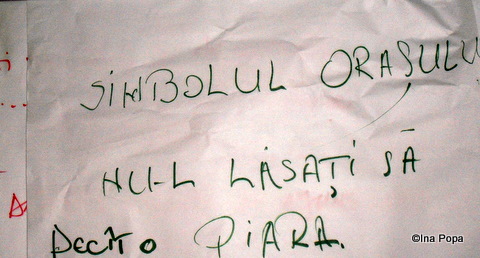 SIMBOLUL ORAȘULU
NU-L LĂSAȚI SĂ
PIARĂ.
©Ina Popa